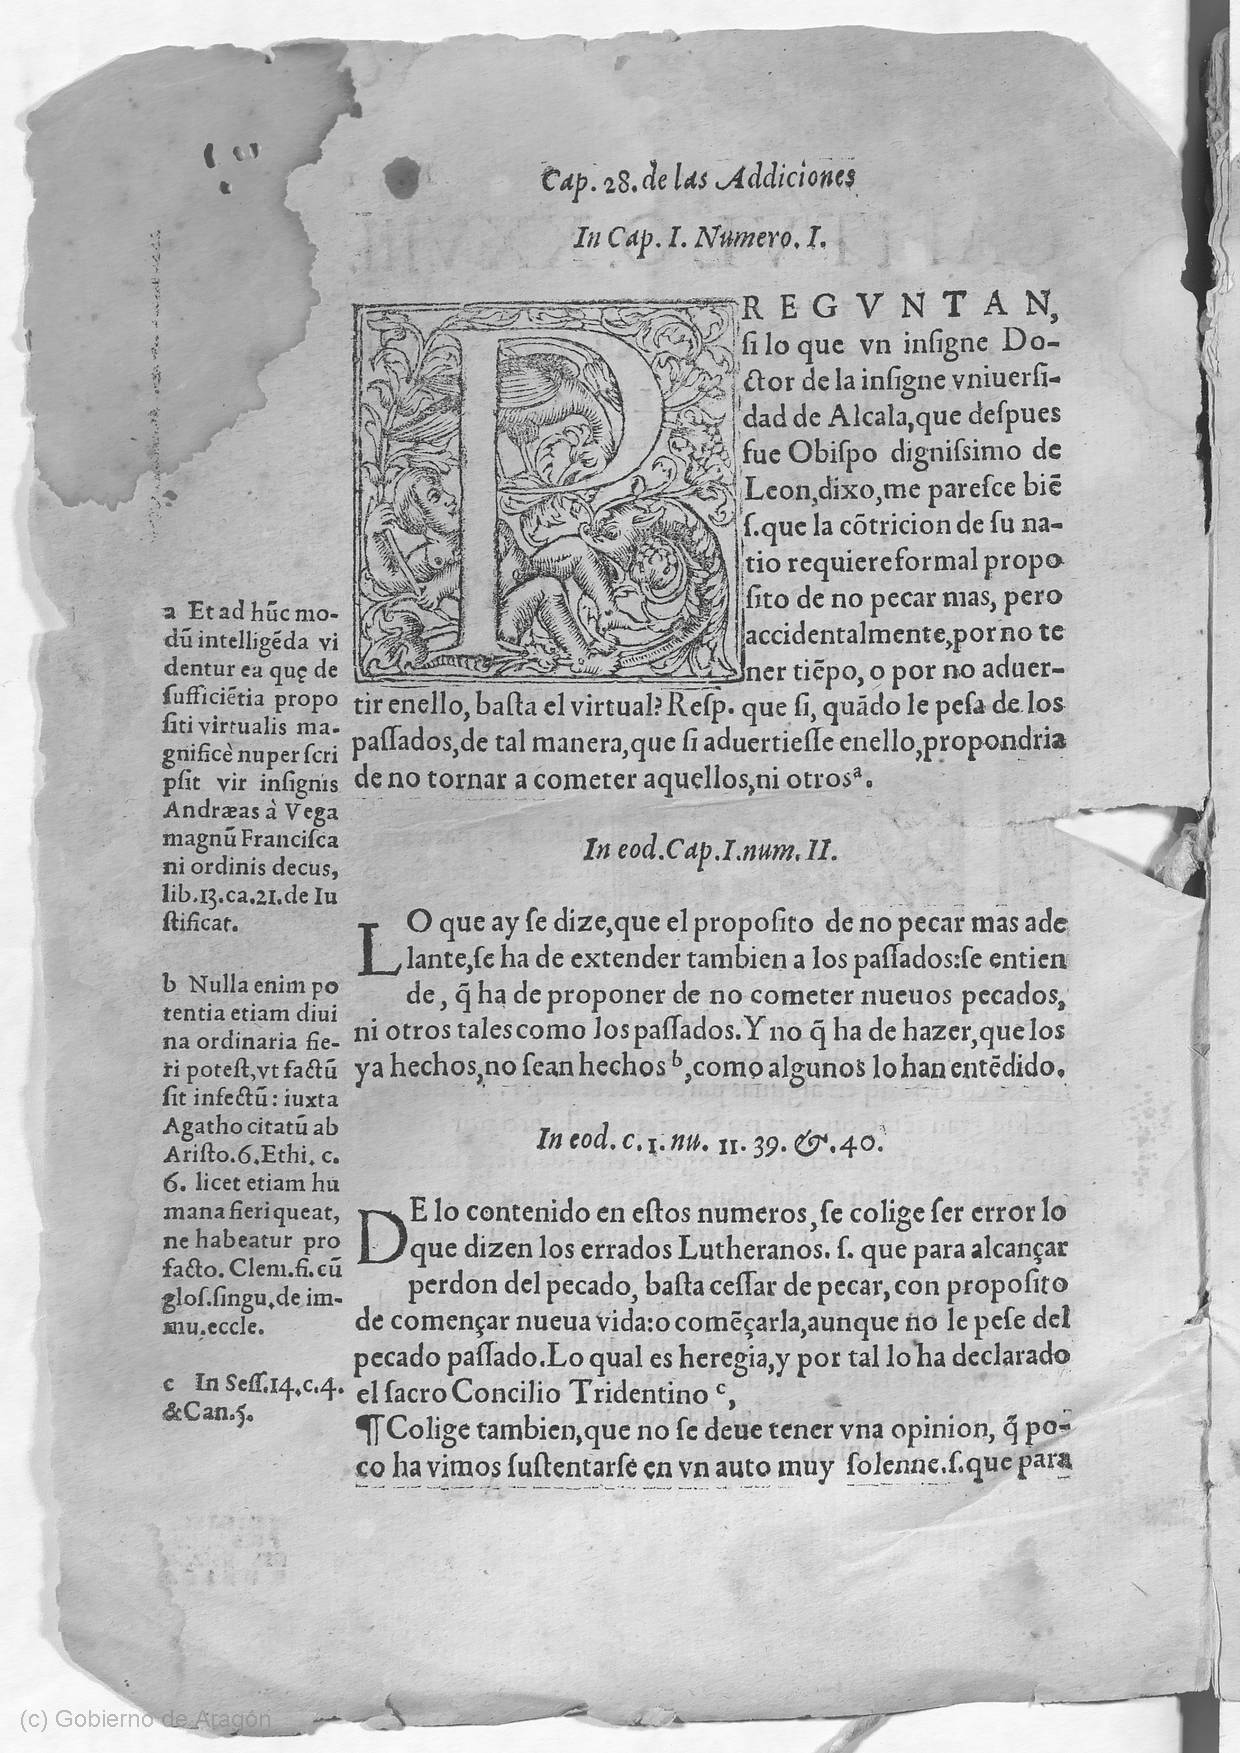 Cap. 28. de las Addiciones
In Cap. I. Numero. I.
PREGVNTAN,
ſi lo que vn inſigne Do-
ctor de la inſigne vniuerſi-
dad de Alcala, que deſpues
fue Obiſpo digniſsimo de
Leon, dixo, me pareſce biẽ
ſ. que la cõtricion de ſu na-
tio requiere formal propo
ſito de no pecar mas, pero
accidentalmente, por no te
ner tiẽpo, o por no aduer-
tir enello, baſta el virtual? Reſp. que ſi, quãdo le peſa de los
paſſados, de tal manera, que ſi aduertieſſe enello, propondria
de no tornar a cometer aquellos, ni otros ᵃ.
In eod. Cap. I. num. II.
LO que ay ſe dize, que el propoſito de no pecar mas ade
lante, ſe ha de extender tambien a los paſſados: ſe entien
de, q̃ ha de proponer de no cometer nueuos pecados,
ni otros tales como los paſſados. Y no q̃ ha de hazer, que los
ya hechos, no ſean hechos ᵇ, como algunos lo han entẽdido.
In eod. c. 1. nu. 11. 39. &. 40.
DE lo contenido en eſtos numeros, ſe colige ſer error lo
que dizen los errados Lutheranos. ſ. que para alcançar
perdon del pecado, baſta ceſſar de pecar, con propoſito
de començar nueua vida: o comẽçarla, aunque no le peſe del
pecado paſſado. Lo qual es heregia, y por tal lo ha declarado
el ſacro Concilio Tridentino ᶜ,
¶ Colige tambien, que no ſe deue tener vna opinion, q̃ po-
co ha vimos ſuſtentarſe en vn auto muy ſolenne. ſ. que para
a Et ad hũc mo-
dũ intelligẽda vi
dentur ea quę de
ſufficiẽtia propo
ſiti virtualis ma-
gnificè nuper ſcri
pſit vir inſignis
Andræas à Vega
magnũ Franciſca
ni ordinis decus,
lib. 13. ca. 21. de Iu
ſtificat.
b Nulla enim po
tentia etiam diui
na ordinaria fie-
ri poteſt, vt factũ
ſit infectũ: iuxta
Agatho citatũ ab
Ariſto. 6. Ethi. c.
6. licet etiam hu
mana fieri queat,
ne habeatur pro
facto. Clem. fi. cũ
gloſ. ſingu. de im-
mu. eccle.
c In Seſſ. 14. c. 4.
& Can. 5.
(c) Gobierno de Aragón